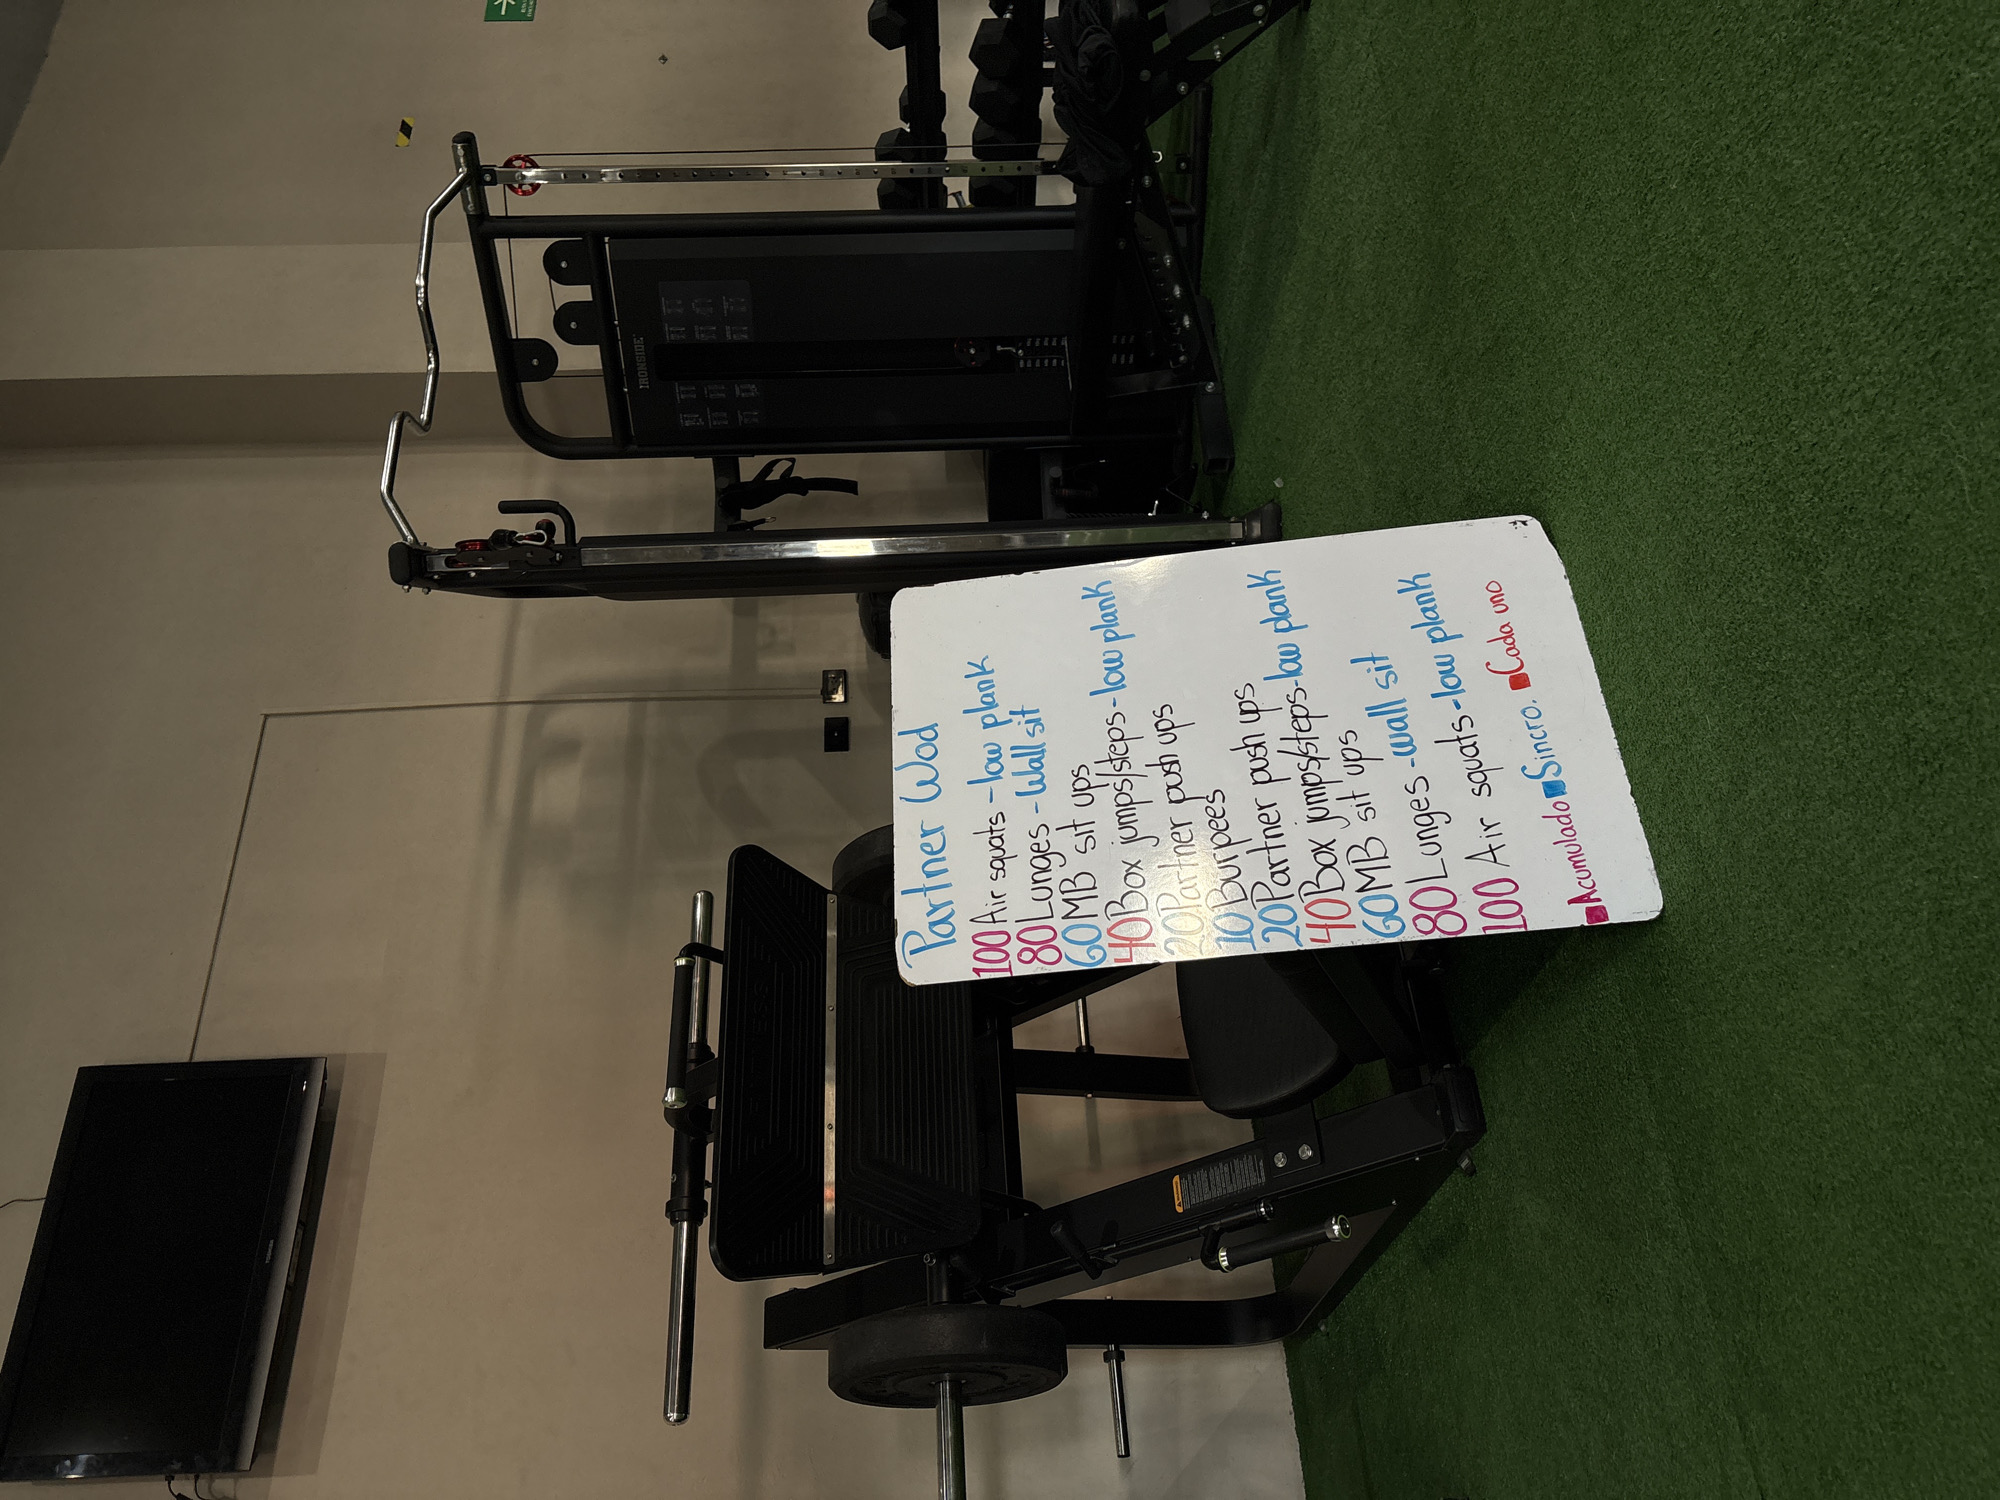 Partner Wod
100 Air squats - low plank
80 Lunges - Wall sit
60 MB sit ups
40 Box jumps/steps - low plank
20 Partner push ups
10 Burpees
20 Partner push ups
40 Box jumps/steps - low plank
60 MB sit ups
80 Lunges - wall sit
100 Air squats - low plank
Acumulado Sincro. Cada uno
IRONSIDE
TOSHIBA